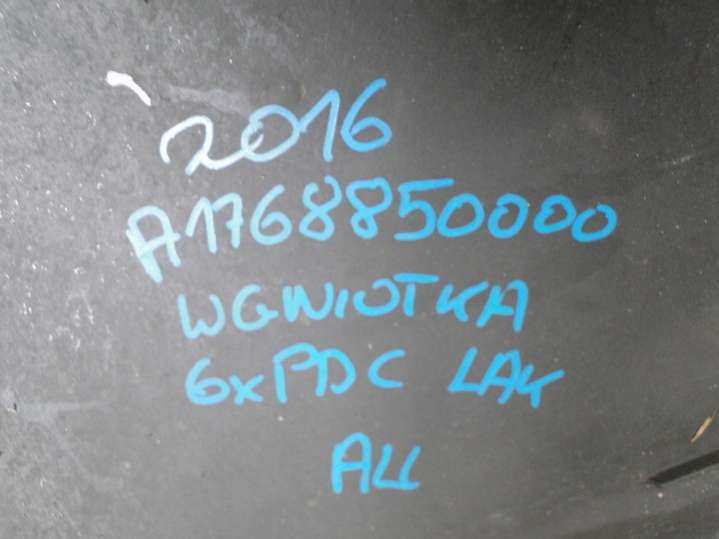 2016
A1768850000
WGWIOTKA
6xPDC LAK
ALL